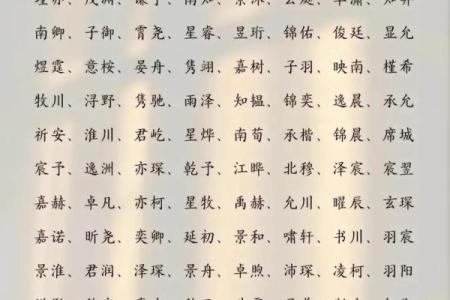 南卿、子御、霄尧、星睿、昱珩、锦佑、俊廷、显允
煜霆、意桉、晏舟、隽翊、嘉树、子羽、映南、槿希
牧川、浔野、隽驰、雨泽、知韫、锦奕、逸晨、承允
祈安、淮川、君屹、星烨、南荀、承楷、锦晨、席城
宸予、逸洲、亦琛、乾予、江晔、北穆、泽宸、宸翌
嘉赫、卓凡、亦柯、星牧、禹赫、允川、曜辰、玄琛
嘉诺、昕尧、奕卿、延初、景和、啸轩、书川、羽宸
景淮、君润、泽琛、景舟、卓煦、沛琛、凌柯、羽阳